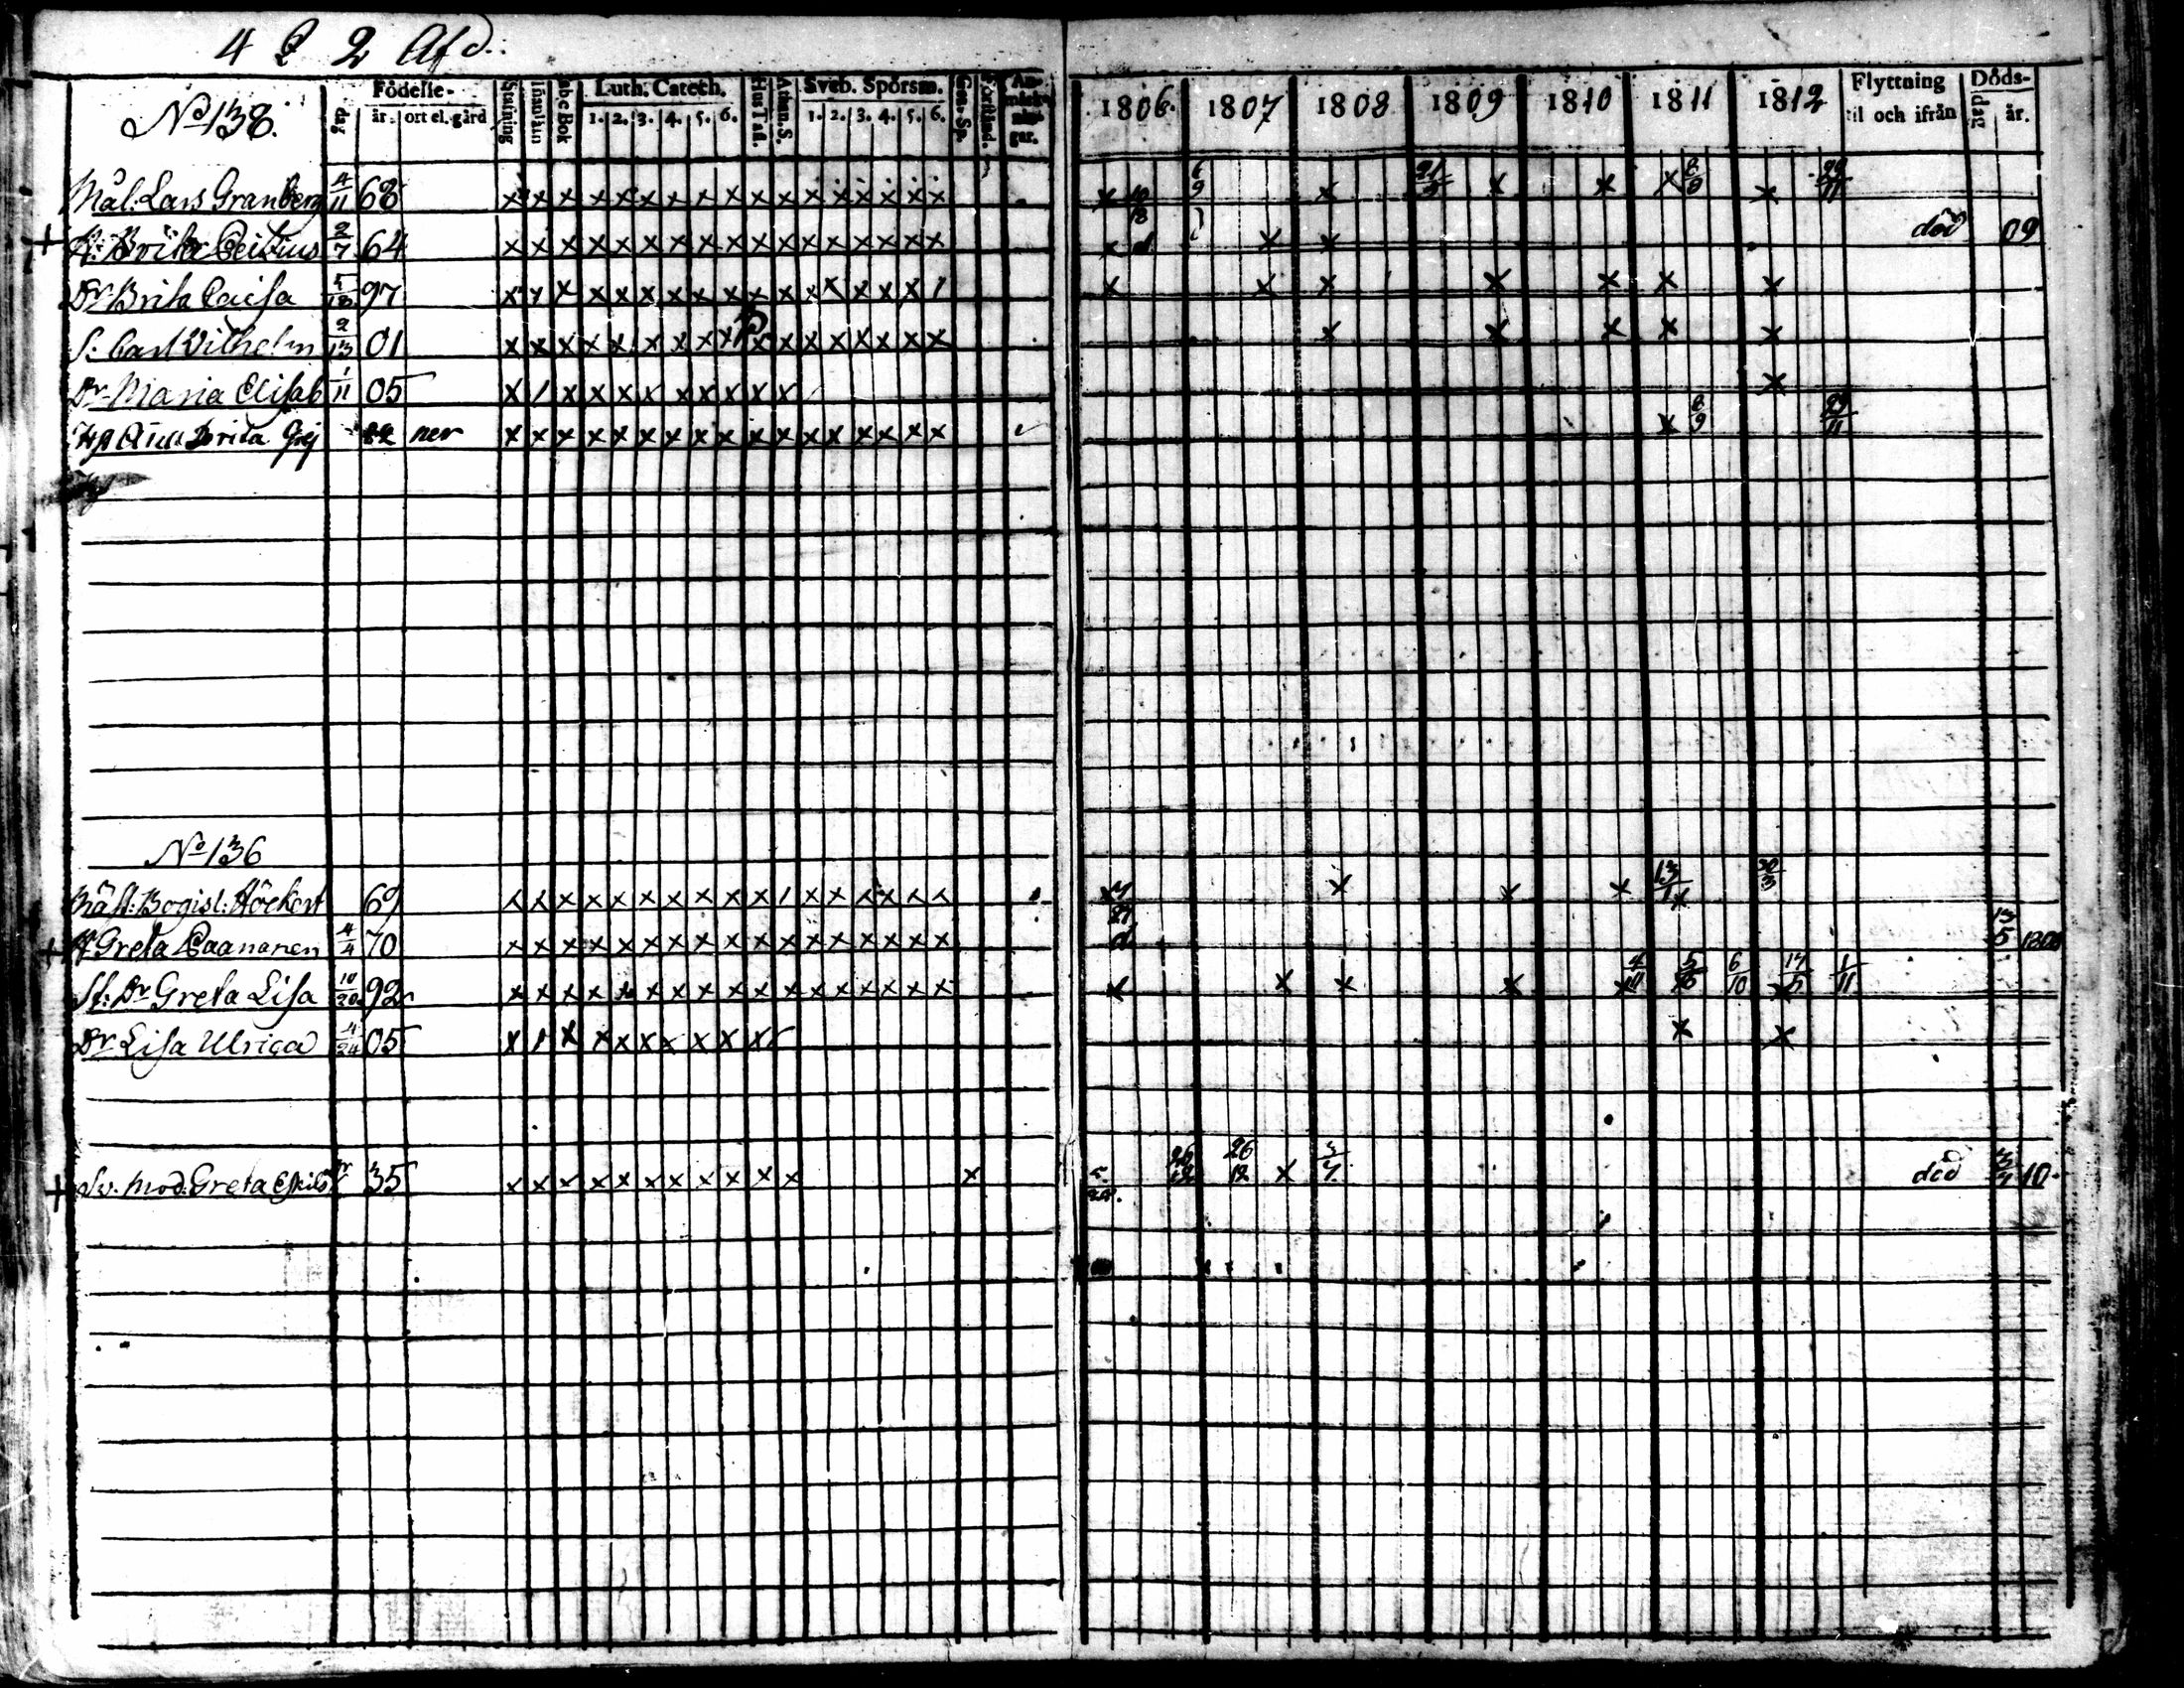 4 Q 2 Afd.
No 138.
Födelse-
dag
år.
ort el. gård
Stafning
Innanläsn
Abc Bok
Luth. Catech.
1. 2. 3. 4. 5. 6.
Hus Tafl.
Athan. S.
Sveb. Spörsm.
1. 2. 3. 4. 5. 6.
Gen. Sp.
Förstånd.
An-
märk-
nin-
gar.
1806. 1807 1808 1809 1810 1811 1812
Flyttning
til och ifrån
Döds-
dag
år.
Mål: Lars Granberg 4/11 68 x x x x x x x x x x x x x x x x x x 6/9 x 21/3 x x x 8/9 x 29/11
+ H: Brita 2/7 64 x x x x x x x x x x x x x x x x x x d x x död 09
Dr Brita Caisa 97 x x x x x x x x x x x x x x x x / x x x x x x x
S: Carl Vilhelm 9/13 01 x x x x x x x x x x x x x x x x x x x x x x
Dr Maria Elisab 1/11 05 x / x x x x x x x x x x
Brita 82 ner x x x x x x x x x x x x x x x x x x 8/9 29/11
No 136
Bogisl: Höckert 69 x x x x x x x x x x / x x x x x x x x x x 13/1 x 30/3
+ H Greta Paananen 4/4 70 x x x x x x x x x x x x x x x x x 27 d 13/5 1808
St: Dr Greta Lisa 10/20 92 x x x x x x x x x x x x x x x x x x x x x x 4/11 6/10 1/11
Dr Lisa Ulrica 4/24 05 x / x x x x x x x x x x
+ Sv. mod. Greta 35 x x x x x x x x x x x x 26/12 26/12 x 3/7 död 3/7 10.